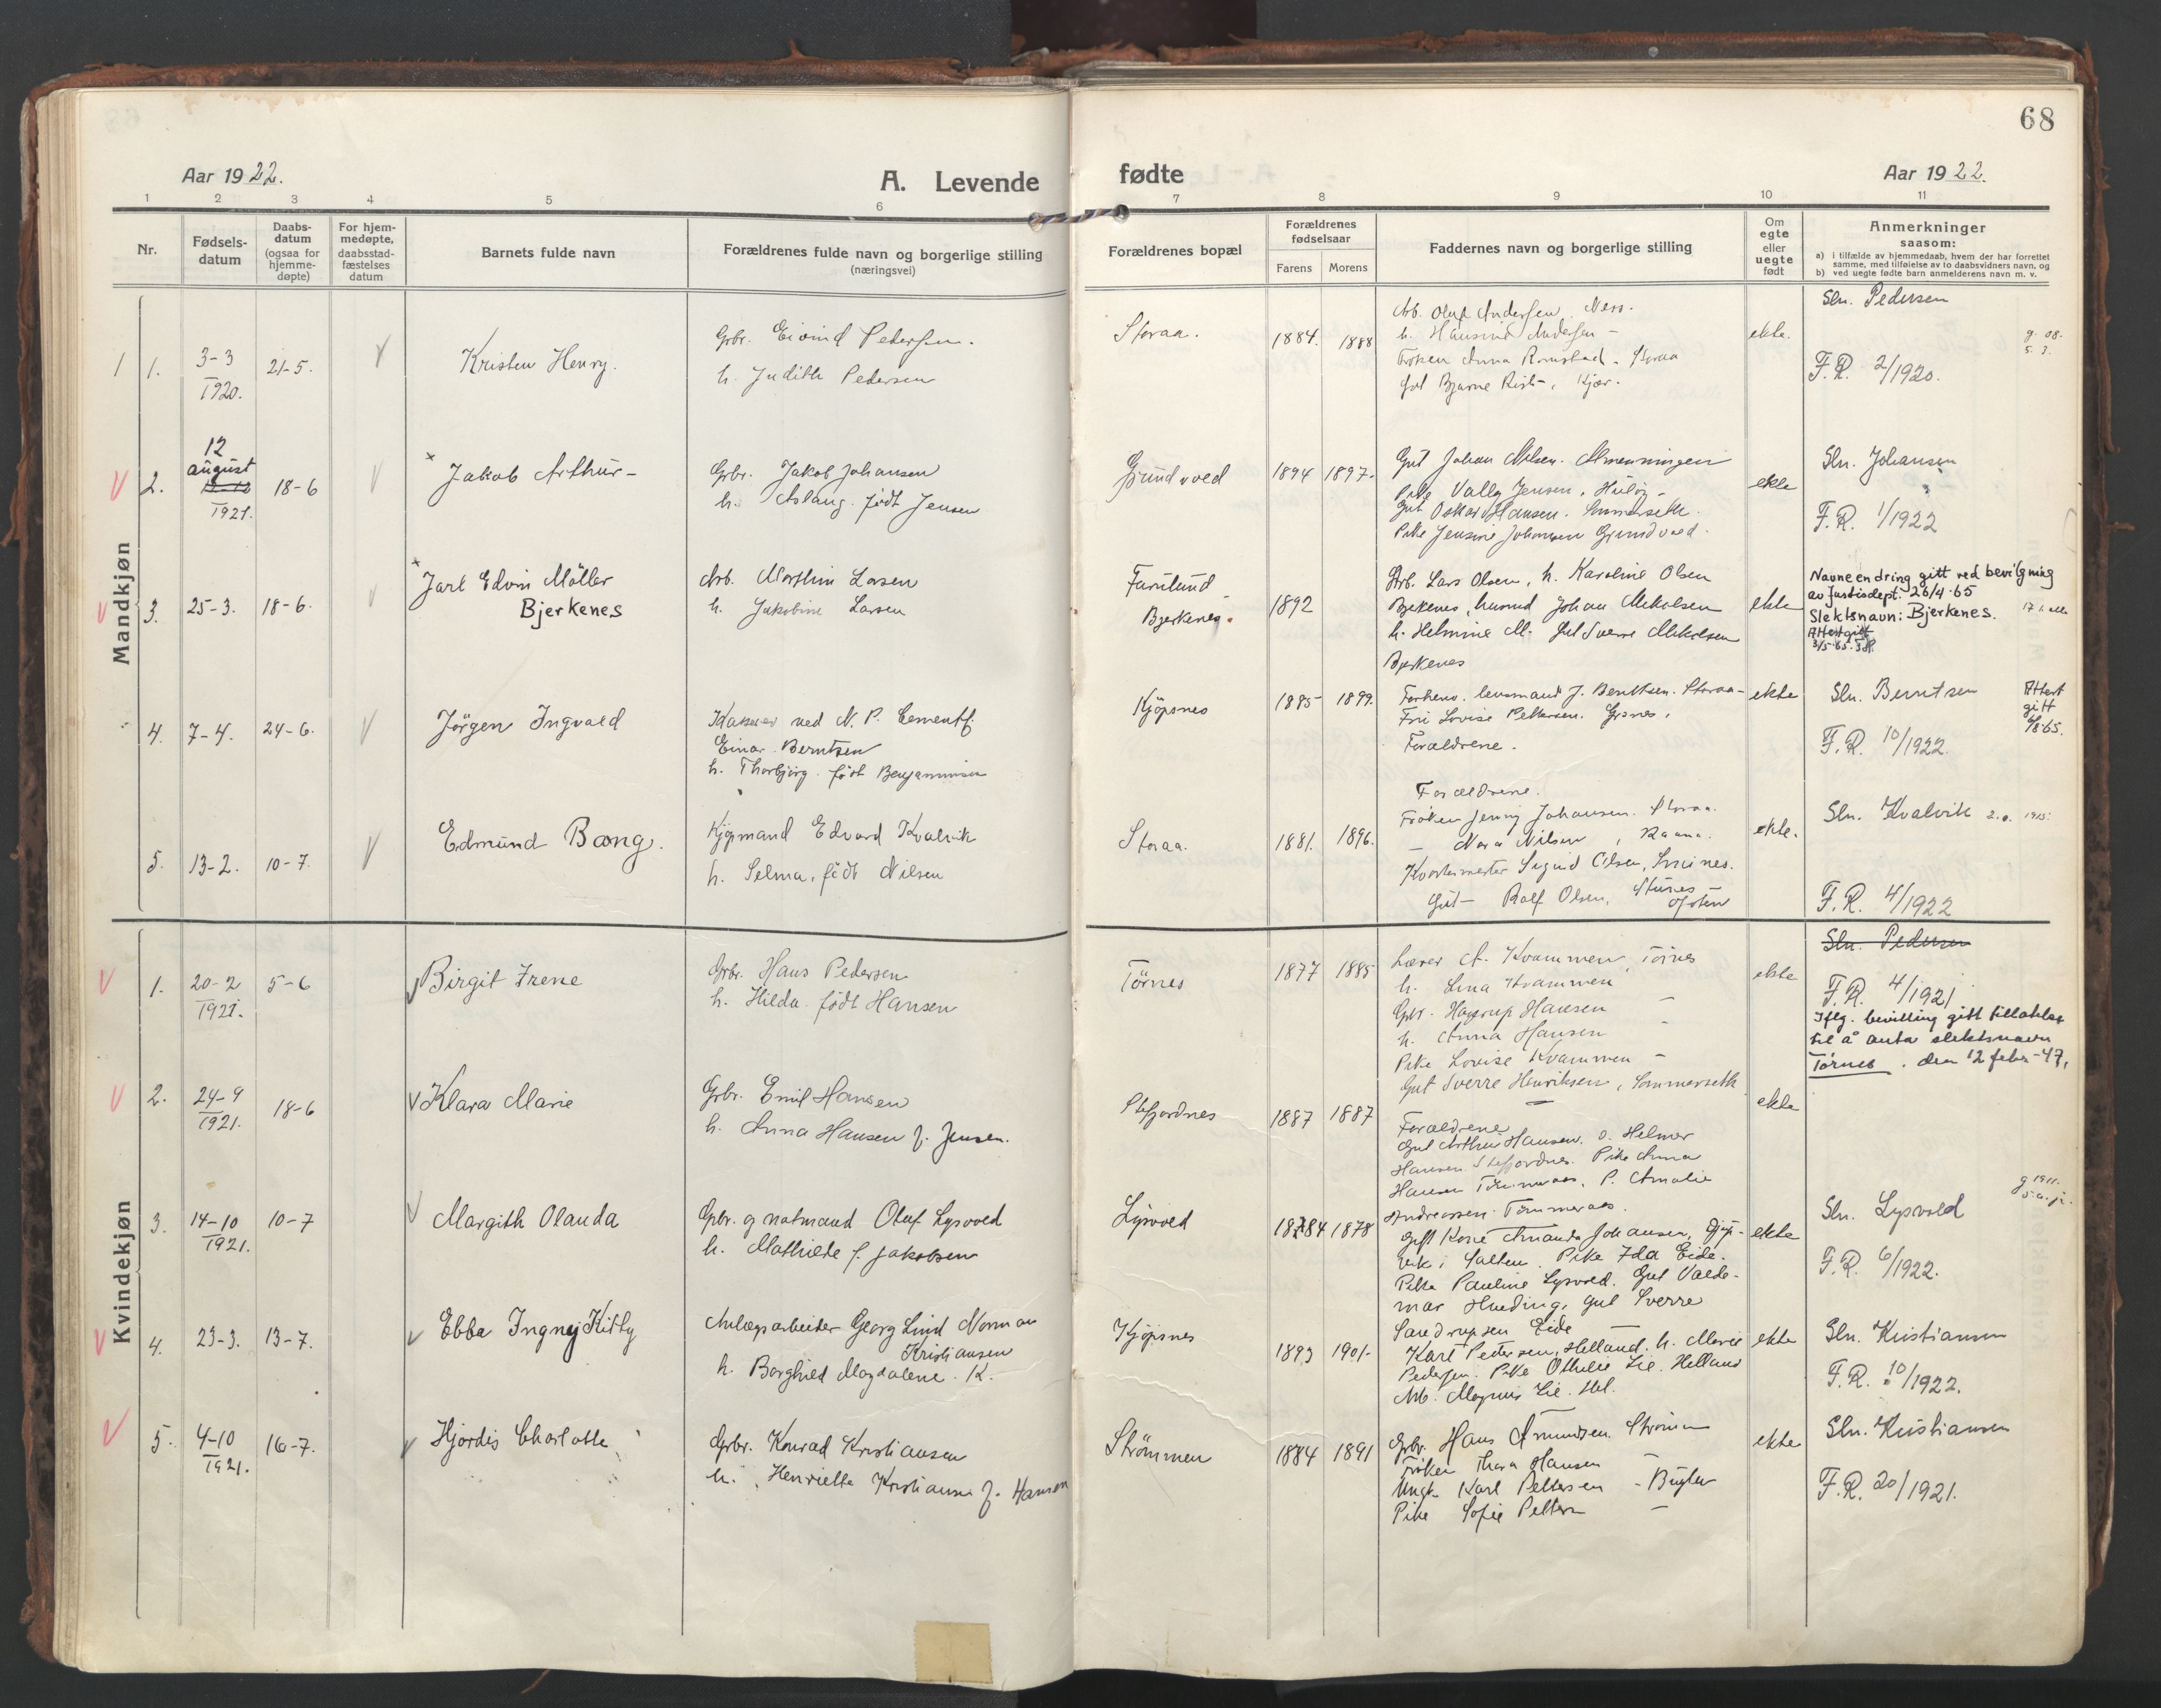 68
Aar 1922.
A. Levende
fødte
Aar 1922.
1 2 3 4 5 6 7 8 9 10 11
Nr.
Fødsels-
datum
Daabs-
datum
(ogsaa for
hjemme-
døpte)
For hjem-
medøpte,
daabsstad-
fæstelses
datum
Barnets fulde navn
Forældrenes fulde navn og borgerlige stilling
(næringsvei)
Forældrenes bopæl
Forældrenes
fødselsaar
Farens
Morens
Faddernes navn og borgerlige stilling
Om
egte
eller
uegte
født
Anmerkninger
saasom:
a) i tilfælde av hjemmedaab, hvem der har forrettet
samme, med tilføielse av to daabsvidners navn, og
b) ved uegte fødte barn anmelderens navn m. v.
Mandkjøn
1 1.
3-3
1920.
21-5.
Kristen Henry.
Grbr. Eivind Pedersen.
h. Judith Pedersen
Storaa.
1884. 1888
Arb. Oluf Andersen. Ness.
h. Hansine Andersen -
Frøken Anna - Storaa
Gut Bjarne Kjær.
ekte.
Sln. Pedersen
g. 08.
5. 3.
F.R. 2/1920.
2.
12
august
1921.
18-6
Jakob Arthur-
Grbr. Jakob Johansen
h. Aslaug. født Jensen
Grundvoed
1894 1897-
Gut Johan Nilsen. Almenningen
Pike Vally Jensen,
Gut Oskar Hansen.
Pike Jensine Johansen Grundvoed.
ekte
Sln. Johansen
F.R. 1/1922
3.
25-3.
18-6.
Jarl Edvin Möller
Bjerkenes
Arb. Morthin Larsen
h. Jakobine Larsen
Bjerkenes.
1892
Grb. Lars Olsen, h. Karoline Olsen
Bjerkenes, husmd Johan Mikalsen
h. Helmine M. Gut Sverre Mikalsen
Bjerkenes
ekte
Navneendring gitt ved bevilgning
av Justisdept. 26/4-65
Slektsnavn: Bjerkenes.
Attest gitt
3/5-65.
4.
7-4.
24-6.
Jörgen Ingvald
ved N. P. Cementf.
Einar Berntsen
h. Thorbjørg. født Benjaminsen
Kjöpsnes
1885 1899.
Forhenv. lensmand J. Bentksen. Storaa-
Lovise Pettersen.
Forældrene.
ekte
Sln. Berntsen
Attest
gitt
F.R. 10/1922.
5.
13-2.
10-7.
Edmund Bang.
Kjøpmand Edvard Kvalvik
h. Selma, født Nilsen
Storaa.
1881. 1896.
Forældrene.
Frøken Jenny Johansen. Storaa.
- Nora Nilsen, Raana.
Kvartermester Sigurd Olsen,
Gut- Rolf Olsen,
ekte.
Sln. Kvalvik 1915.
F.R. 4/1922
Kvindekjøn
1.
20-2
1921.
5-6
Birgit Irene
Grbr. Hans Pedersen
h. Hilda. født Hansen
Törnes
1877 1885
Lærer A. Kvammen, Törnes
h. Lina Kvammen
Grbr. Hagerup Hansen
h. Anna Hansen
Pike Lovise Kvammen -
Gut Sverre Henriksen, Sommerseth
ekte
Sln. Pedersen
F.R. 4/1921
Iflg. bevilling gitt tillatelse
til å anta slektsnavn
Törnes. den 12 febr-47,
2.
24-9
1921.
18-6
Klara Marie
Grbr. Emil Hansen
h. Anna Hansen f. Jensen.
Stefjordnes
1887 1887
Forældrene
Gut Arthur Hansen. o. Helmer
Hansen Stefjordnes. Pike Anna
Hansen P. Amalie
Andreassen
ekte
3.
14-10
1921.
10-7
Margith Olanda
Grbr. og notmand Oluf Lysvoed
h. Mathilde f. Jakobsen
Lysvoed
1884 1878
Gift Kone Amanda Johansen, Djup-
vik i Salten. Pike Ida Eide.
Pike Pauline Lysvoed. Gut Valde-
mar Hveding, Gut Sverre
Eide
ekte
Sln. Lysvold
g 1911.
F.R. 6/1922.
4.
23-3.
13-7.
Ebba Ingny Kitty
Anlægsarbeider Georg Lind Norman
Kristiansen
h. Borghild Magdalene. K.
Kjöpsnes
1893 1901-
Karl Petersen, Helland. h. Marie
Pedersen. Pike Othilie Lie. Helland
Arb. Magnus Lie. Hel.
ekte
Sln. Kristiansen
F.R. 10/1922.
5.
4-10
1921.
16-7.
Hjördis Charlotte
Grbr. Konrad Kristiansen
h. Henriette Kristiansen f. Hansen
Strömmen
1884 1891
Grbr. Hans Amundsen.
Frøken Thora Hansen
Ungk. Karl Pettersen -
Pike Sofie
ekte
Sln. Kristiansen
F.R. 20/1921.